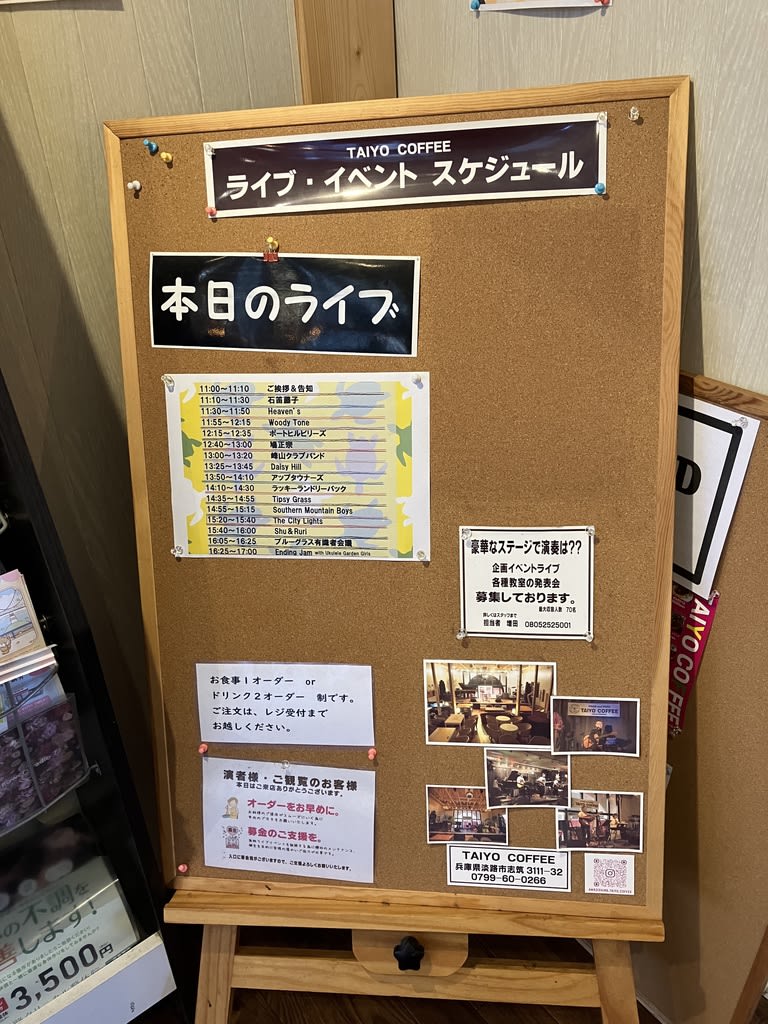 TAIYO COFFEE
ライブ・イベント スケジュール
本日のライブ
11:00～11:10 ご挨拶＆告知
11:10～11:30 石笛藤子
11:30～11:50 Heaven's
11:55～12:15 Woody Tone
12:15～12:35 ポートヒルビリーズ
12:40～13:00 鳩正宗
13:00～13:20 峰山クラブバンド
13:25～13:45 Daisy Hill
13:50～14:10 アップタウナーズ
14:10～14:30 ラッキーランドリーバック
14:35～14:55 Tipsy Grass
14:55～15:15 Southern Mountain Boys
15:20～15:40 The City Lights
15:40～16:00 Shu＆Ruri
16:05～16:25 ブルーグラス有識者会議
16:25～17:00 Ending Jam with Ukulele Garden Girls
豪華なステージで演奏は??
企画イベントライブ
各種教室の発表会
募集しております。
最大収容人数 70名
詳しくはスタッフまで
担当者 増田 08052525001
お食事1オーダー or
ドリンク2オーダー 制です。
ご注文は、レジ受付まで
お越しください。
演者様・ご観覧のお客様
本日はご来店ありがとうございます。
オーダーをお早めに。
募金のご支援を。
入口に募金箱がございますので、ご支援よろしくお願いいたします。
TAIYO COFFEE
TAIYO COFFEE
兵庫県淡路市志筑 3111-32
0799-60-0266
D
TAIYO COFFEE
不調を
します！
3,500円